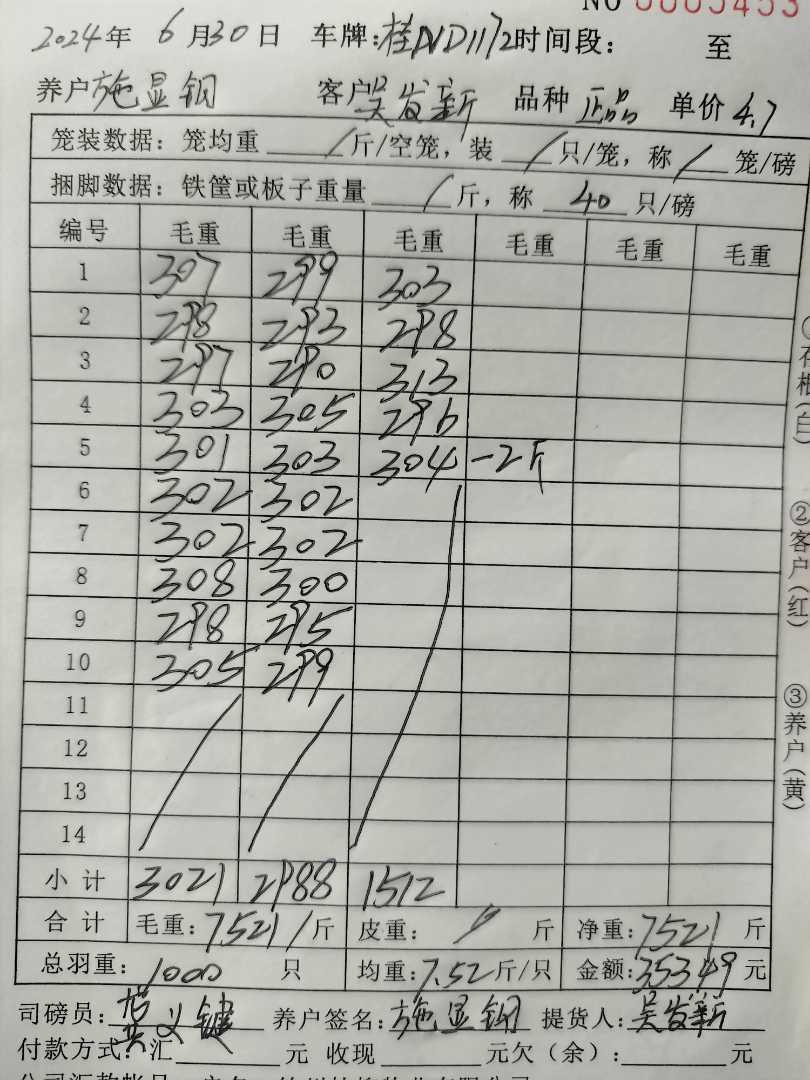 NO 0005453
2024年 6月30日 车牌:桂DVD1172时间段: 至
养户施显钢 客户吴发新 品种 正品 单价 4.7
笼装数据:笼均重 / 斤/空笼,装 / 只/笼,称 / 笼/磅
捆脚数据:铁筐或板子重量 / 斤,称 40 只/磅
编号 毛重 毛重 毛重 毛重 毛重 毛重
1 307 299 303
2 298 293 298
3 297 290 313
4 303 305 296
5 301 303 304 -2斤
6 302 302
7 302 302
8 308 300
9 298 295
10 305 299
11
12
13
14
小计 3021 2988 1512
合计 毛重:7521/斤 皮重: / 斤 净重:7521 斤
总羽重: 1000 只 均重:7.52斤/只 金额:35349元
司磅员: 义键 养户签名:施显钢 提货人:吴发新
付款方式:汇 元 收现 元欠(余): 元
②客户(红)
③养户(黄)